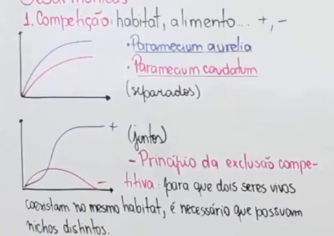 1. Competição: habitat, alimento... +, -
• Paramecium aurelia
• Paramecium caudatum
(separados)
+
-
(juntos)
- Princípio da exclusão compe-
titiva: para que dois seres vivos
coexistam no mesmo habitat, é necessário que possuam
nichos distintos.